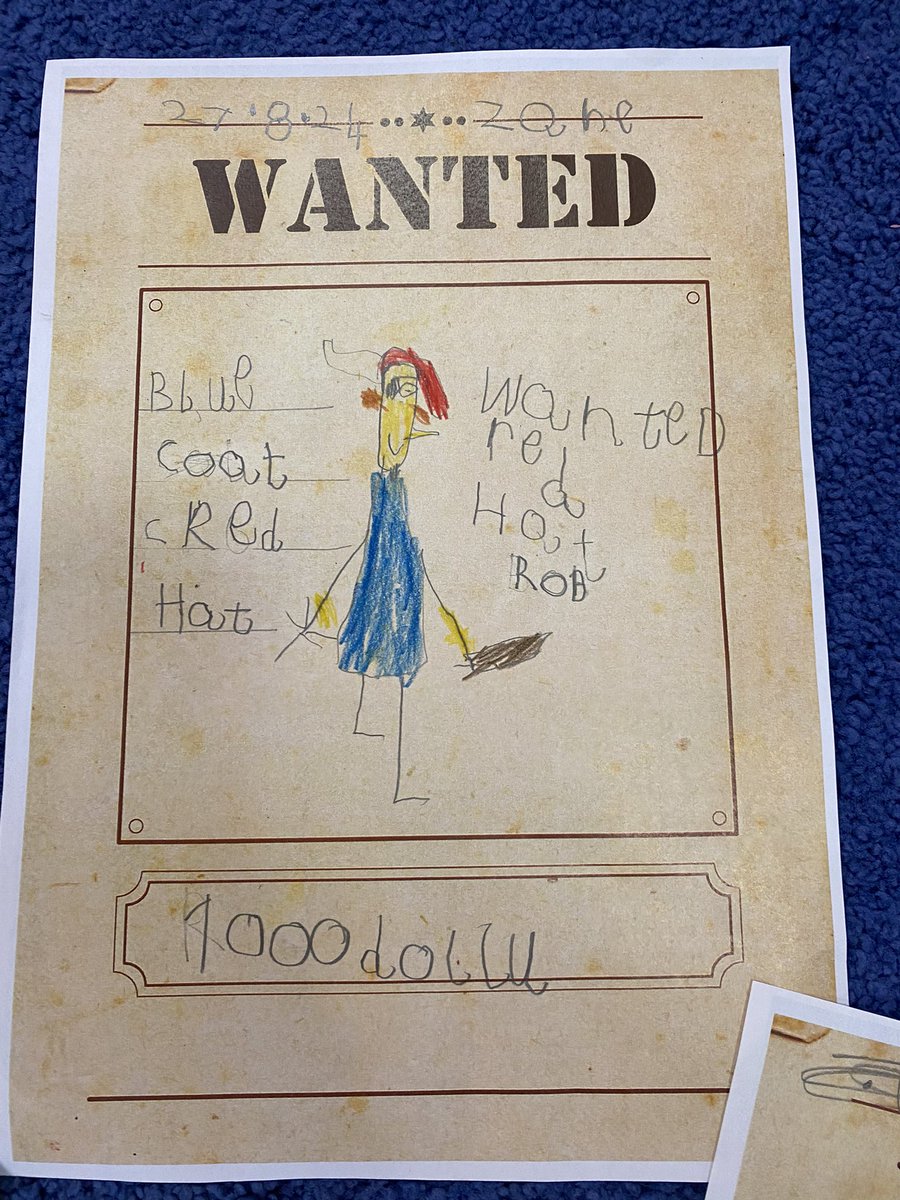 27.8.24 Zane
WANTED
Blue
coat
Red
Hat
WanteD
red
Hat
ROB
1000 dollu